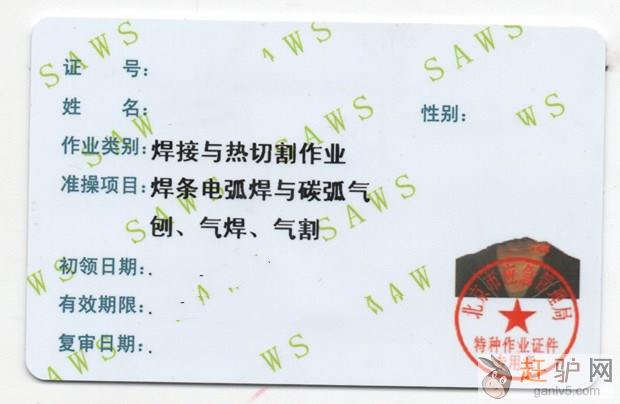 SAWS
SAWS
证 号：
姓 名：
性别：
WS
作业类别：焊接与热切割作业
准操项目：焊条电弧焊与碳弧气
刨、气焊、气割
SAWS
SAWS
初领日期：
WS
有效期限：
复审日期：
WS
特种作业证件
赶驴网
www.ganlv5.com